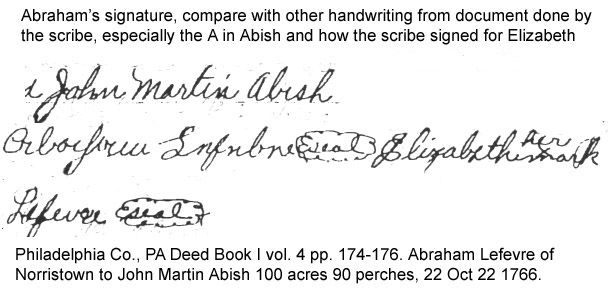 Abraham's signature, compare with other handwriting from document done by
the scribe, especially the A in Abish and how the scribe signed for Elizabeth
John Martin Abish
Seal Elizabeth her x mark
Lefevre Seal
Philadelphia Co., PA Deed Book I vol. 4 pp. 174-176. Abraham Lefevre of
Norristown to John Martin Abish 100 acres 90 perches, 22 Oct 22 1766.